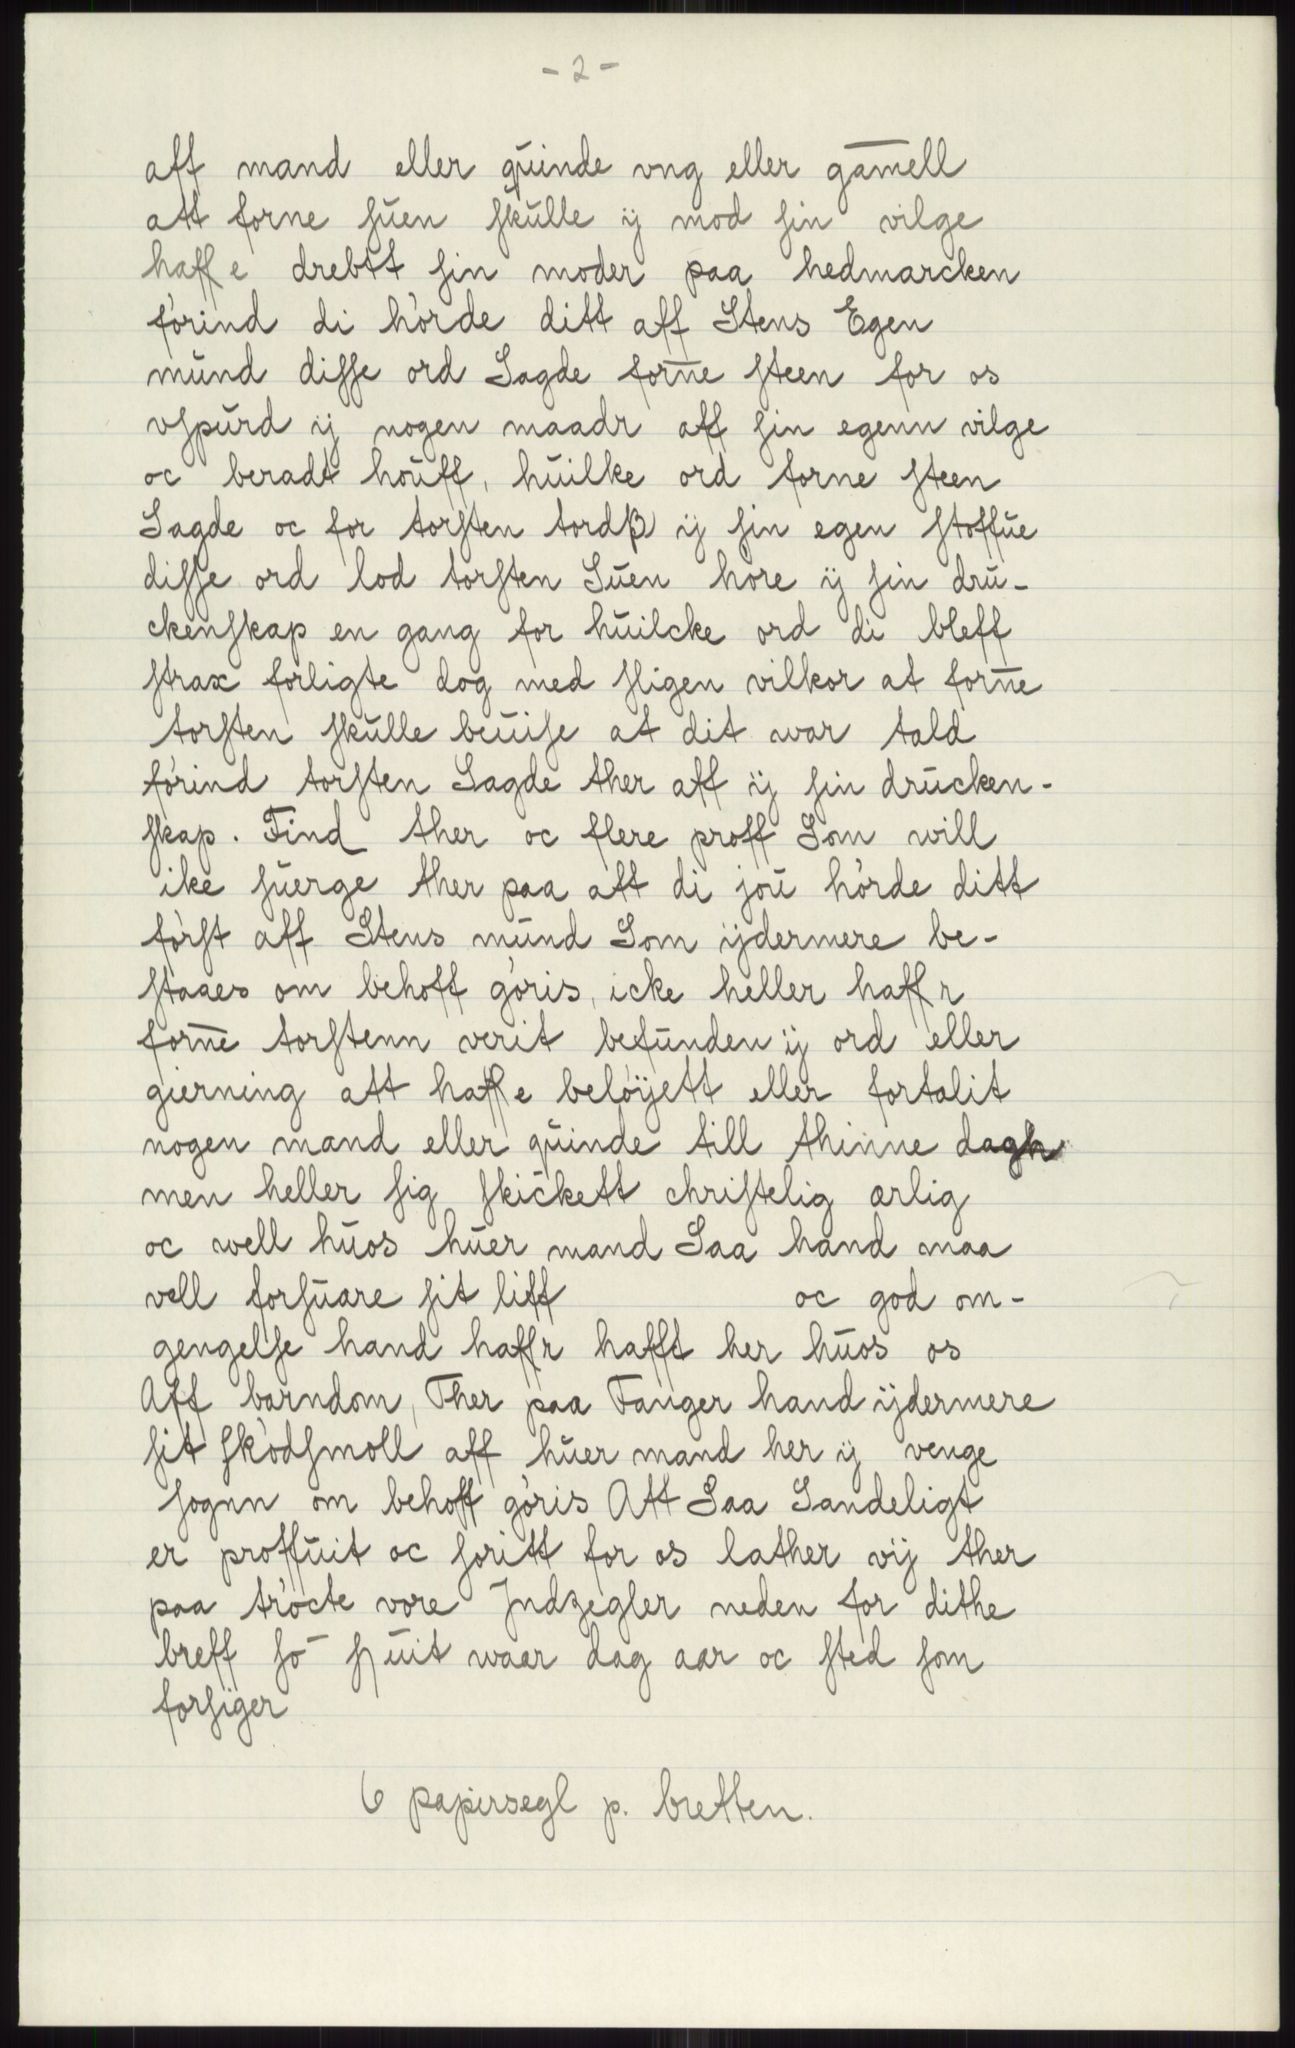 - 2 -
aff mand eller quinde vng eller gam̄ell
att forne suen skulle ij mod sin vilge
haffe drebtt sin moder paa hedmarcken
förind di hörde ditt aff Stens Egen
mund disse ord Sagde forn̄e steen for os
vspurd ij nogen maadr aff sin egenn vilge
oc beradt houff, huilke ord forne steen
Sagde oc for torsten tordß ij sin egen stoffue
disse ord lod torsten Suen höre ij sin dru-
ckenskap en gang for huilcke ord di bleff
strax forligte dog med sligen vilkor at forn̄e
torsten skulle beuise at dit war tald
förind torsten Sagde ther aff ij sin drucken-
skap. Find ther oc flere proff Som will
ike suerge ther paa att di jou hörde ditt
först aff Stens mund Som ijdermere be-
staaes om behoff göris, icke heller haffr
forn̄e torstenn verit befunden ij ord eller
gierning att haffe beløyett eller fortalit
nogen mand eller quinde till thinne dagh
men heller sig skickett christelig ærlig
oc well huos huer mand Saa hand maa
vell forsuare sit liff oc god om-
gengelse hand haffr hafft her huos os
Aff barndom, Ther paa Fanger hand ijdermere
sit sködsmoll aff huer mand her ij venge
sognn om behoff göris Att Saa Sandeligt
er proffuit oc soritt for os lather vij ther
paa tröcte vore Jndzegler neden for dithe
breff so waar dag aar oc sted som
forsiger
6 papirsegl p. bretten.